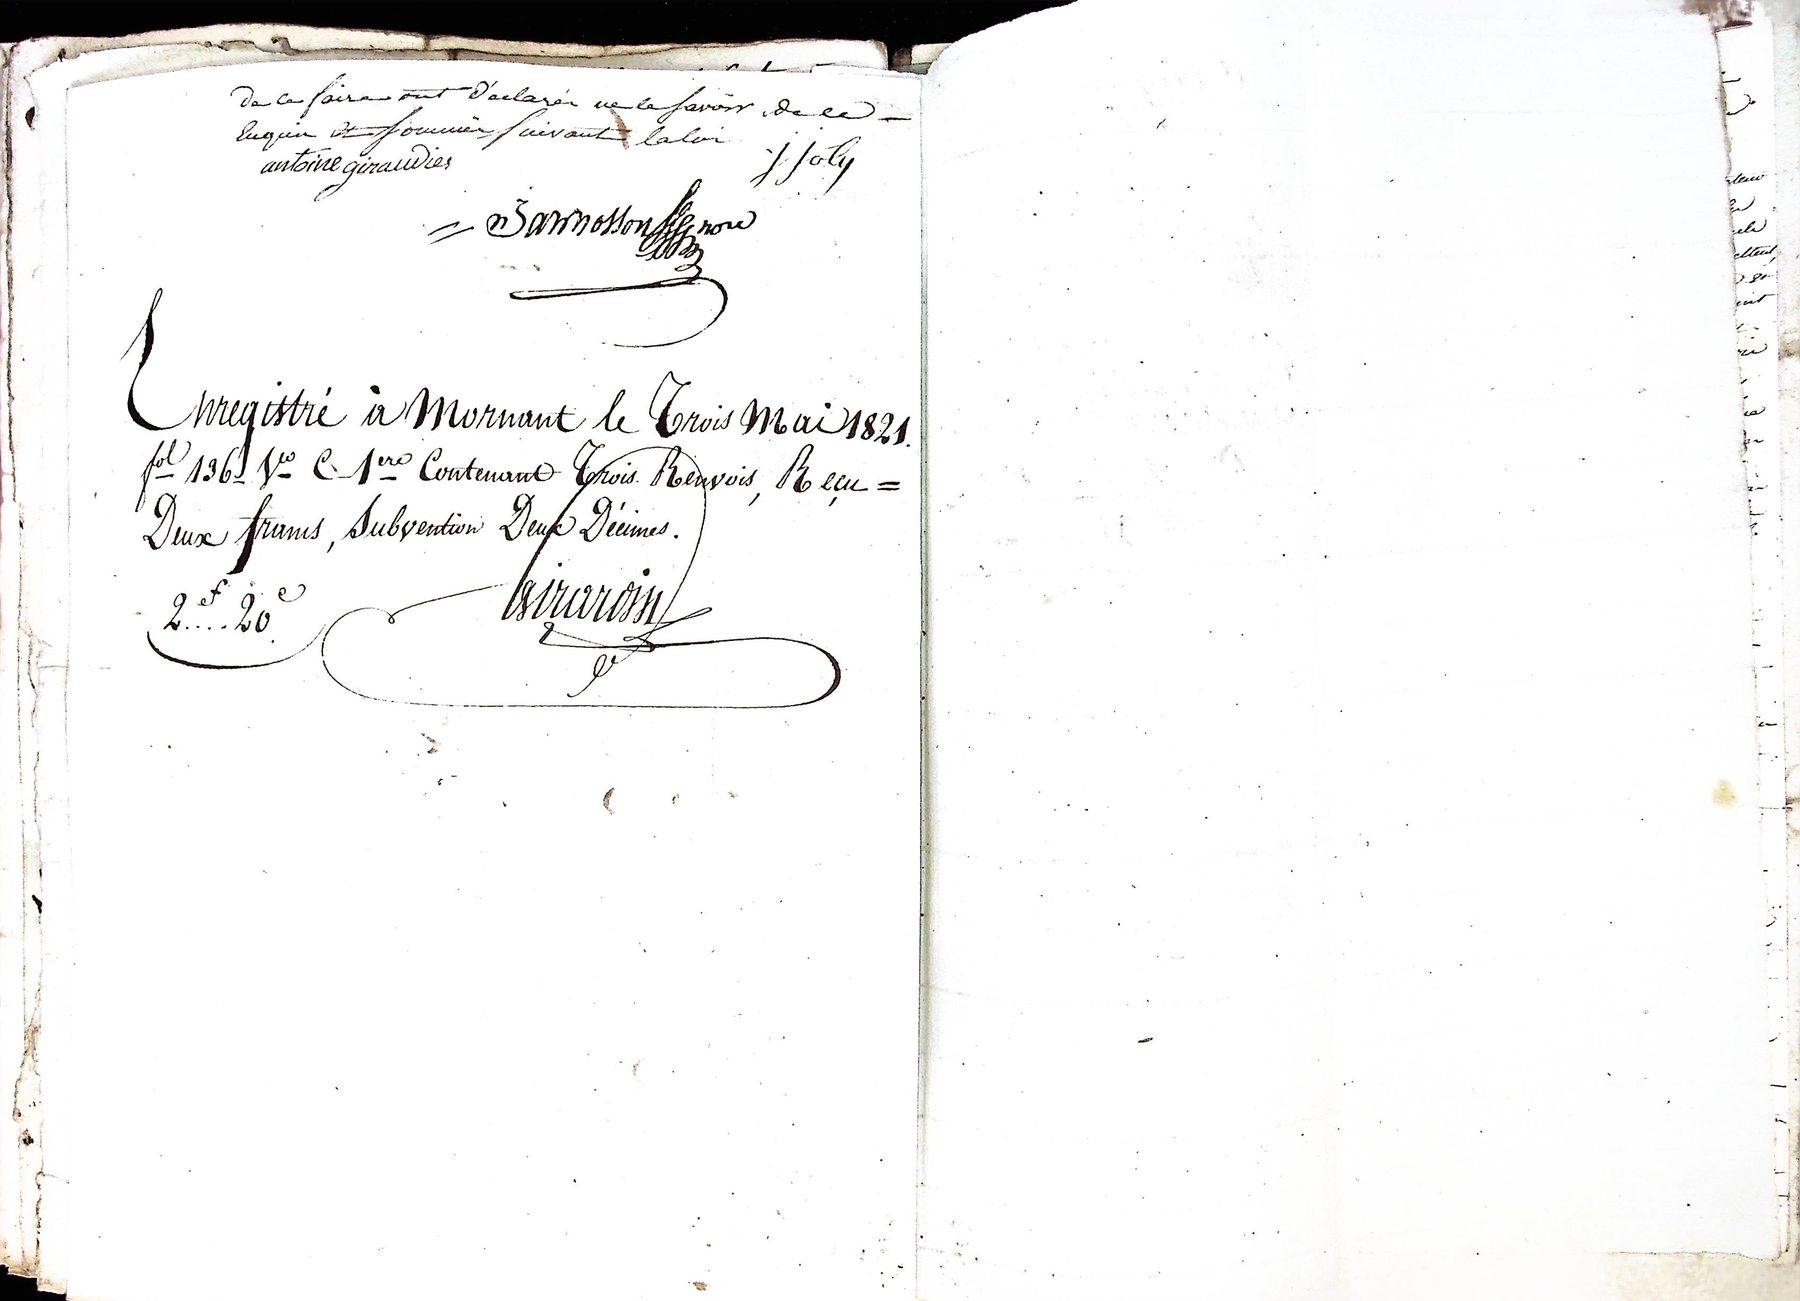 de ce faire ont déclaré ne le savoir de ce
Enquis et sommés suivant la loi
antoine giraudier
j joly
Enregistré à Mornant le Trois Mai 1821.
fol 136 Vo C. 1ere Contenant Trois Renvois, Reçu =
Deux francs, Subvention Deux Décimes.
2f....20c
Girardin